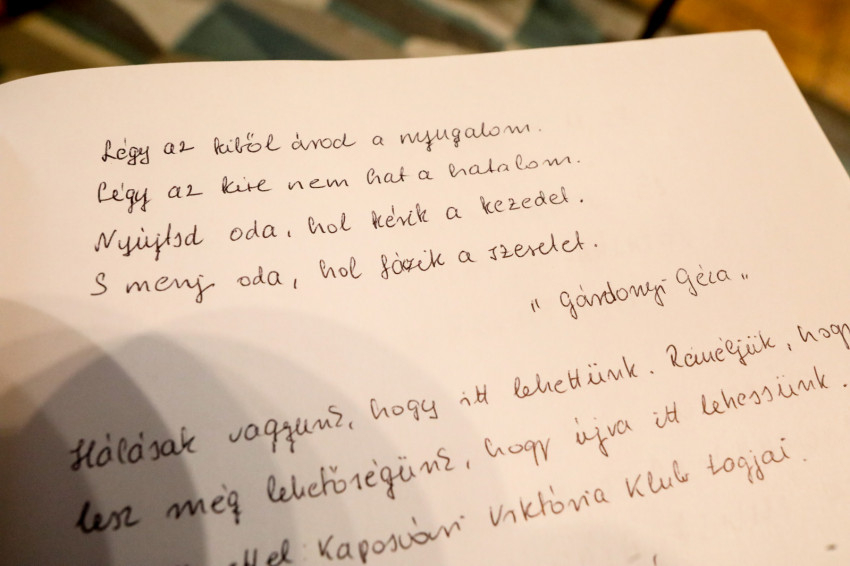 Légy az kiből árod a nyugalom.
Légy az kire nem hat a hatalom.
Nyújtsd oda, hol kérik a kezedet.
S menj oda, hol fázik a szeretet.
„ Gárdonyi Géza "
Hálásak vagyunk, hogy itt lehettünk. Reméljük, hogy
lesz még lehetőségünk, hogy újra itt lehessünk.
Kaposvári Viktória Klub tagjai.